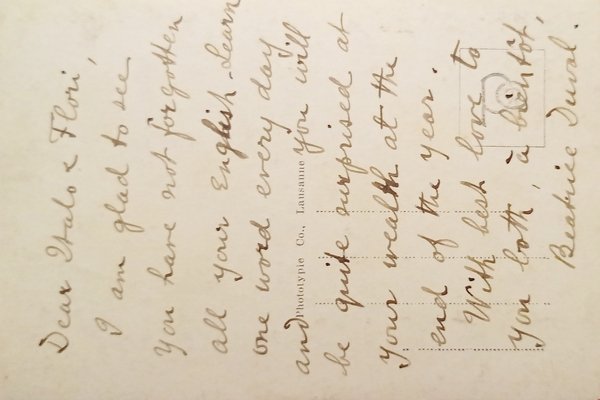 Dear Italo & Flori,
I am glad to see
you have not forgotten
all your English. Learn
one word every day
and you will
be quite surprised at
your wealth at the
end of the year.
With best love to
you both, à bientôt,
Beatrice Duval.
Phototypie Co., Lausanne